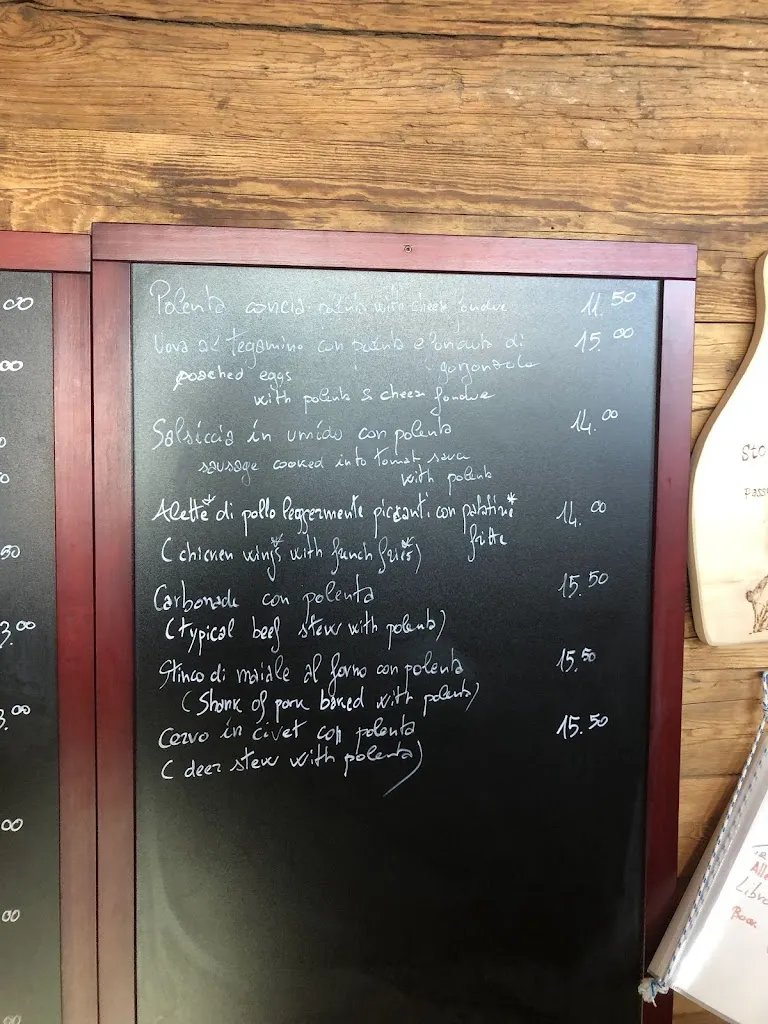 Polenta concia polenta with cheese fondue 11.50
Uova al tegamino con polenta e fonduta di 15.00
gorgonzola
poached eggs
with polenta & cheese fondue
Salsiccia in umido con polenta 14.00
sausage cooked into tomat sauce
with polenta
Alette* di pollo leggermente piccanti con patatine* 14.00
fritte
(chicken wings* with french fries*)
Carbonade con polenta 15.50
(typical beef stew with polenta)
Stinco di maiale al forno con polenta 15.50
(Shank of pork baked with polenta)
Cervo in civet con polenta 15.50
(deer stew with polenta)
00
00
50
3.00
3.00
00
00
00
Sto
pass
Alle
Libro
Book